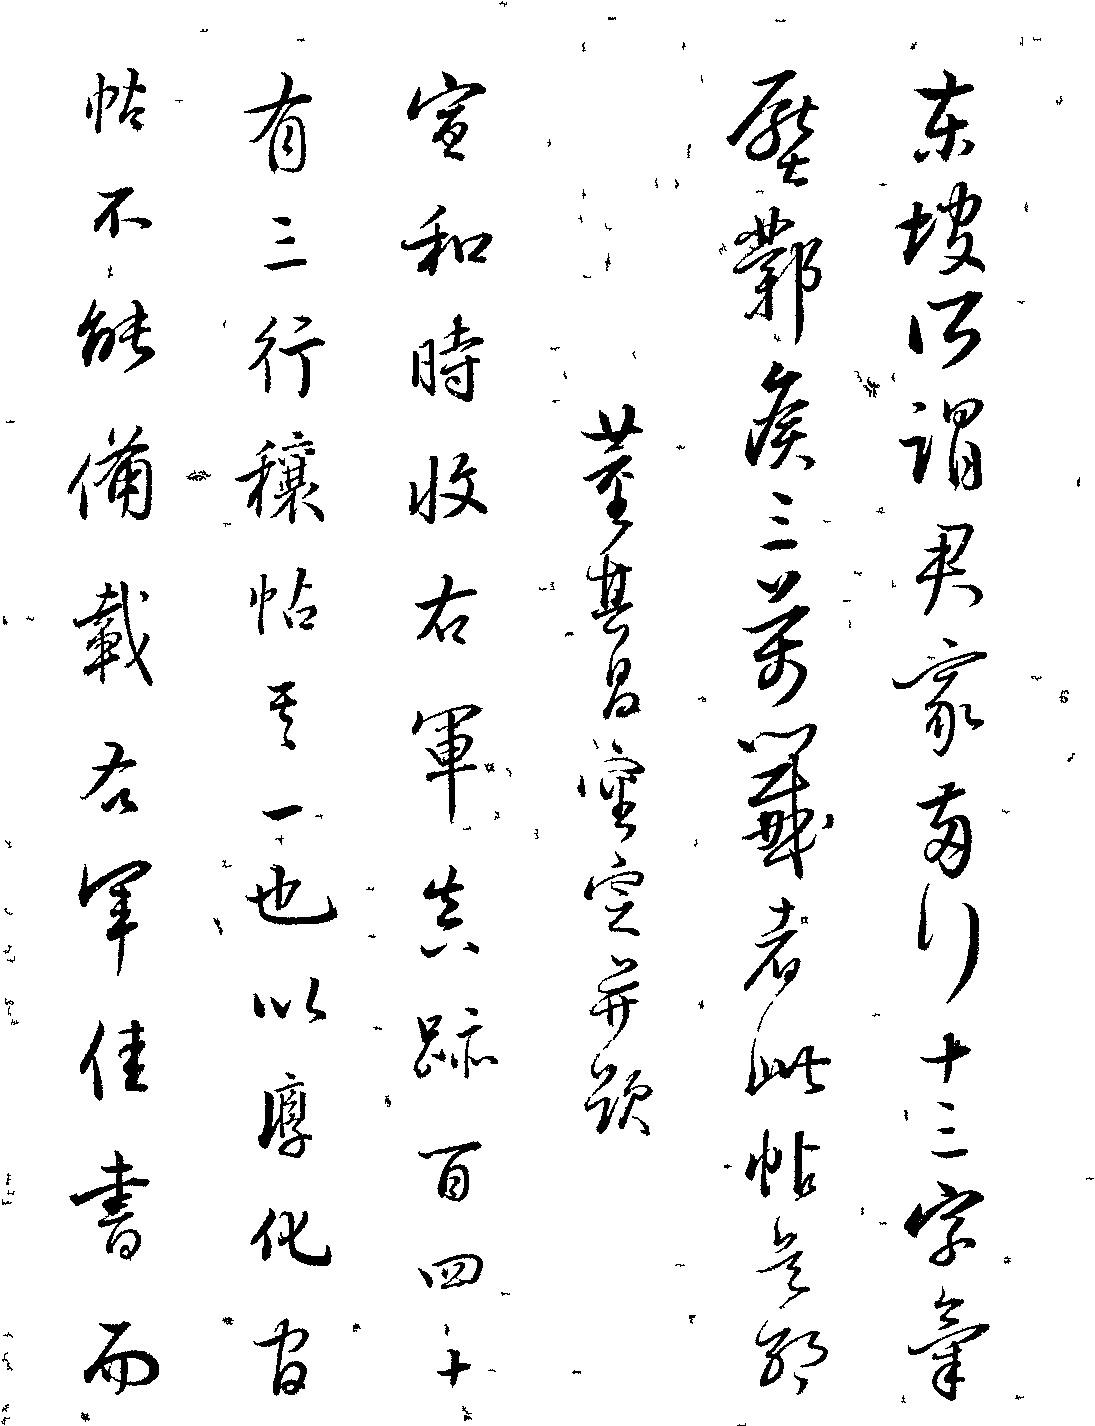 東坡所謂君家兩行十三字氣
壓鄴侯三萬籤者此帖是耶
董其昌審定并題
宣和時收右軍真跡百四十
有三行穰帖其一也以淳化官
帖不能備載右軍佳書而